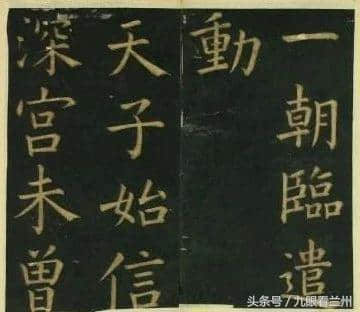 一朝臨遣
動
天子始信
深宮未曽
头条号/九眼看兰州